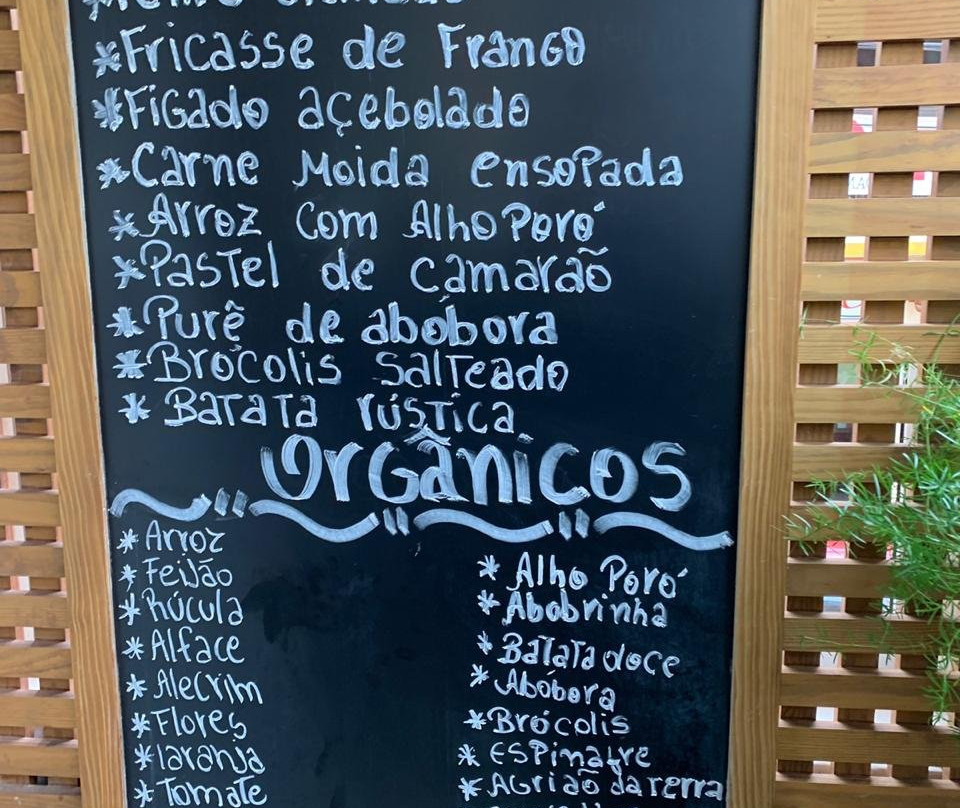 *Fricasse de Frango
*Figado açebolado
*Carne Moida ensopada
*Arroz Com Alho Poró
*Pastel de camarão
*Purê de abóbora
*Brócolis Salteado
*Batata rústica
Orgânicos
*Arroz
*Feijão
*Rúcula
*Alface
*Alecrim
*Flores
*laranja
*Tomate
*Alho Poró
*Abobrinha
*Batata doce
*Abóbora
*Brócolis
*Espinafre
*Agrião da terra